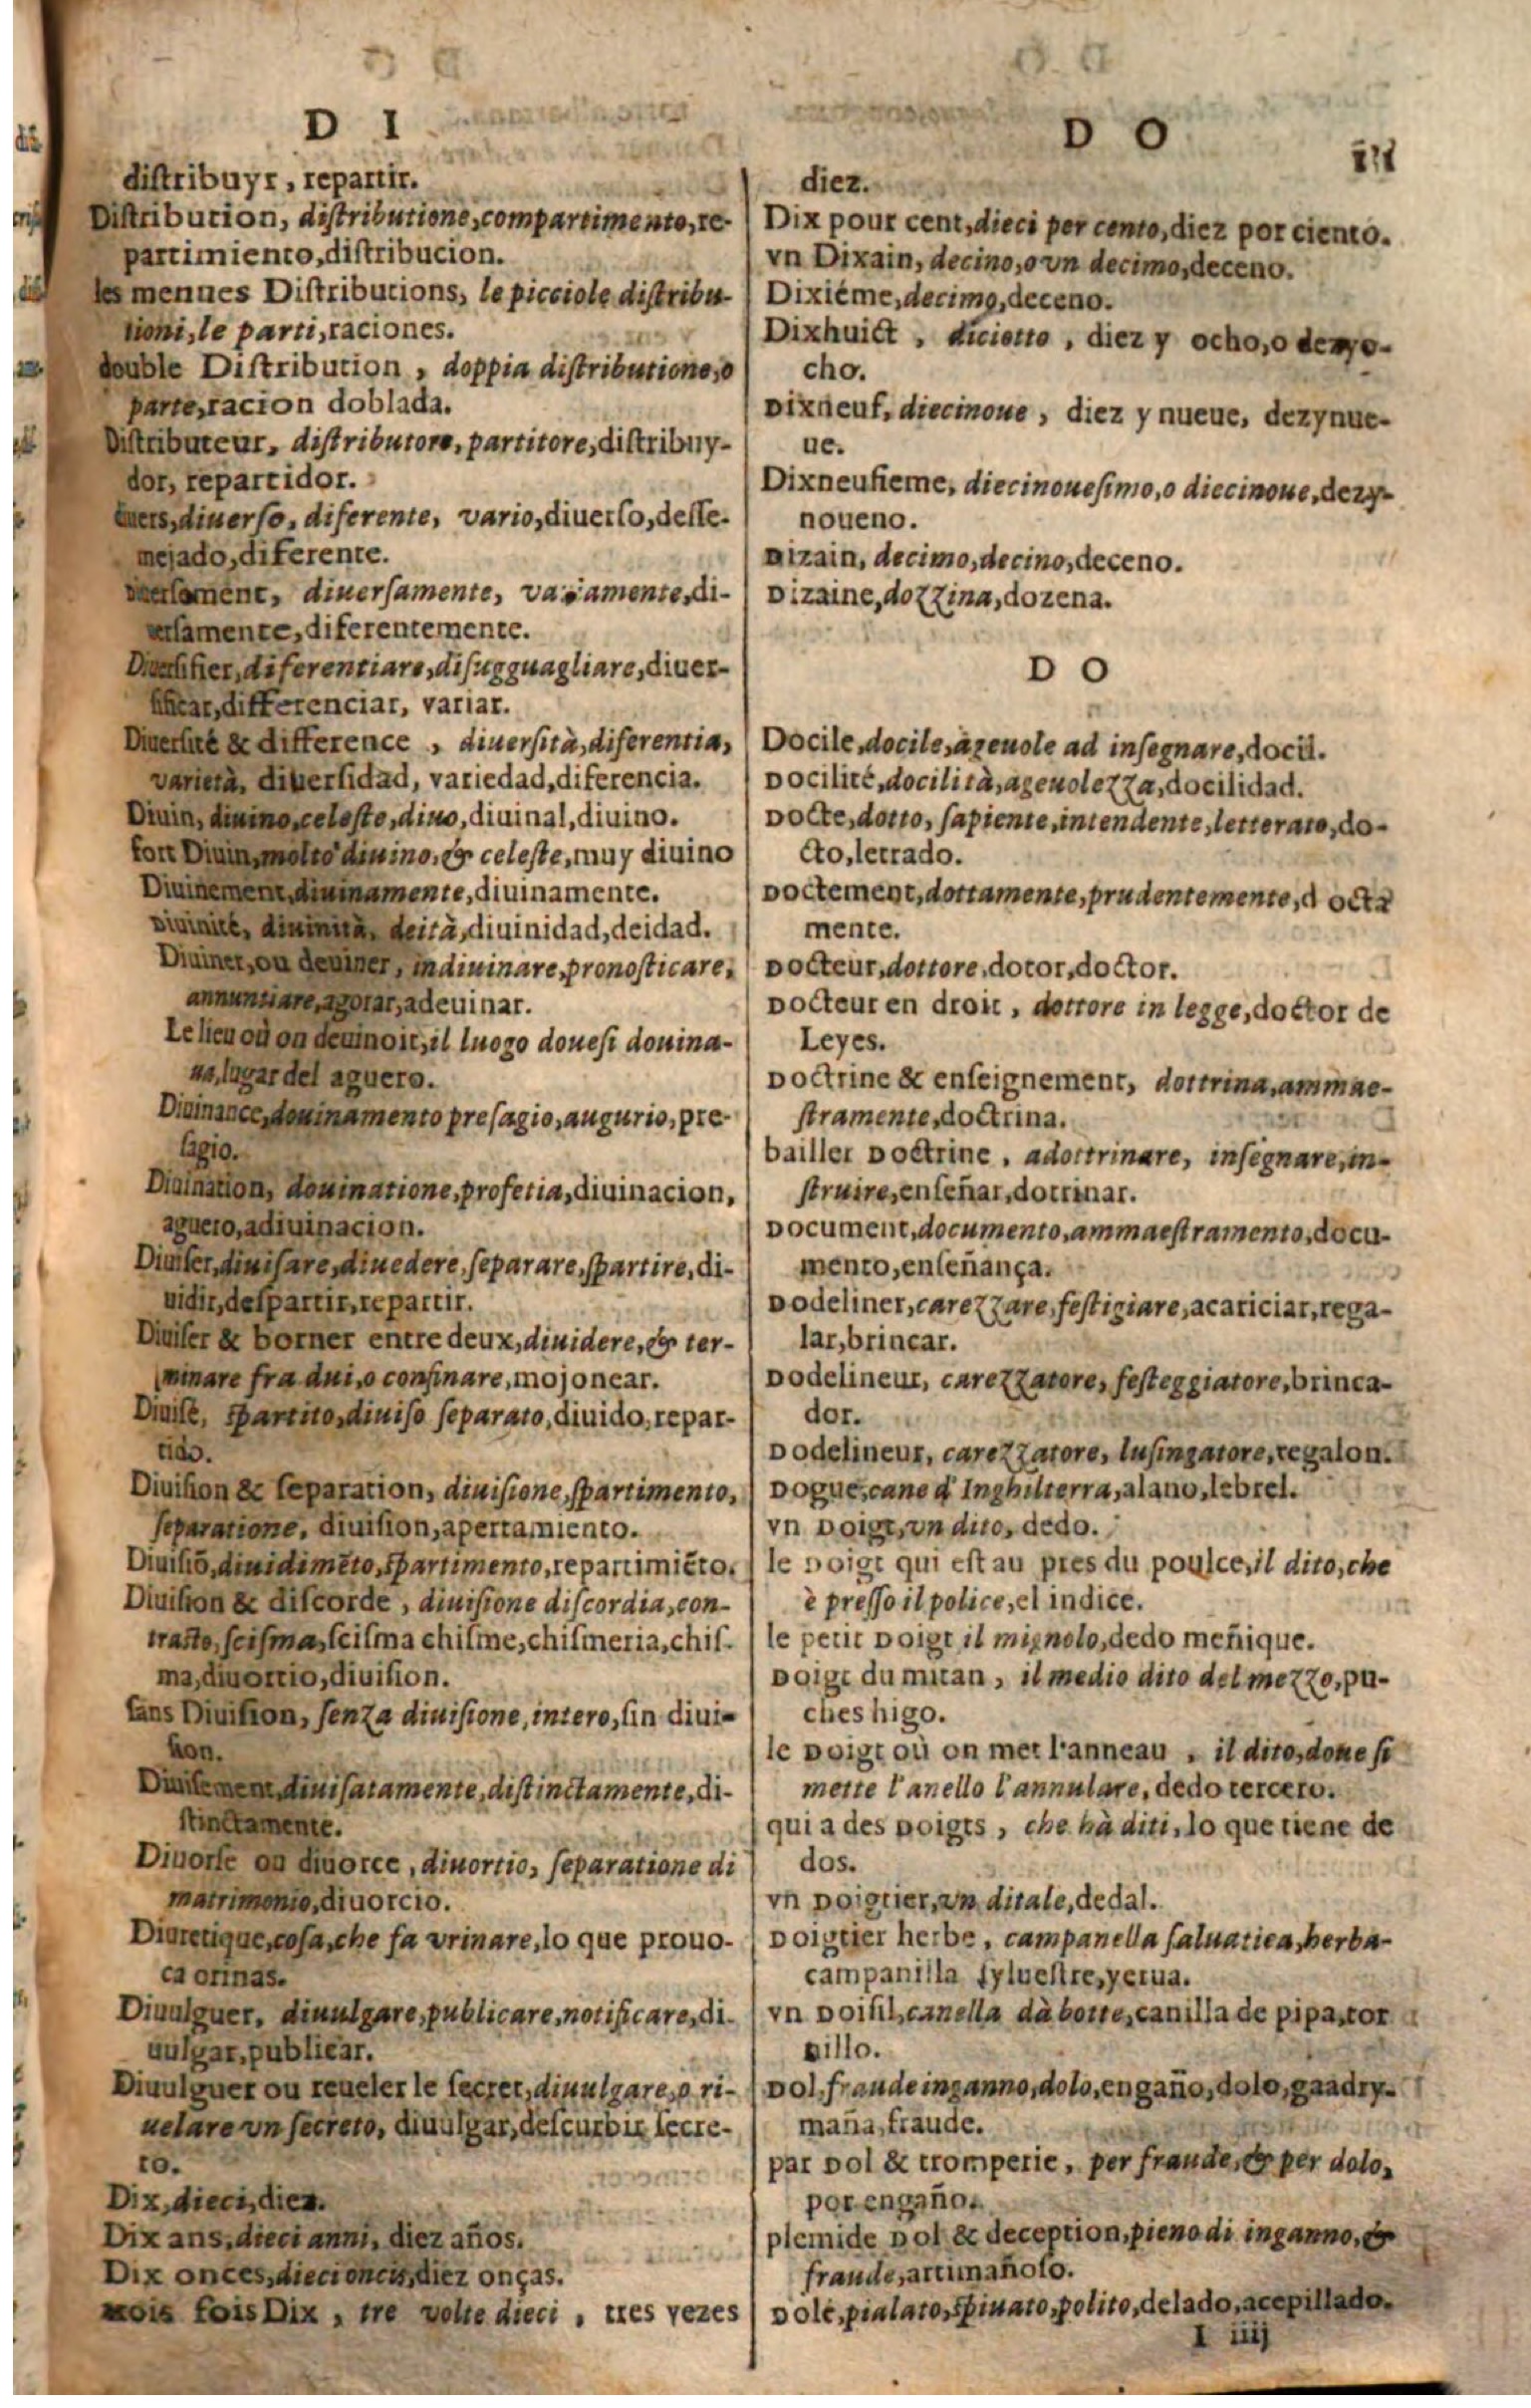 D I
diſtribuyr, repartir.
Diſtribution, diſtributione, compartimento, re-
partimiento, diſtribucion.
les mennes Diſtributions, le picciole diſtribu-
tioni, le parti, raciones.
double Diſtribution, doppia diſtributione, o
parte, racion doblada.
Diſtributeur, diſtributore, partitore, diſtribuy-
dor, repartidor.
diuerſo, diferente, vario, diuerſo, deſſe-
mejado, diferente.
diuerſamente, variamente, di-
uerſamente, diferentemente.
Diuerſifier, diferentiare, diſugguagliare, diuer-
ſificar, differenciar, variar.
Diuerſité & difference, diuerſità, diferentia,
varietà, diuerſidad, variedad, diferencia.
Diuin, diuino, celeſte, diuo, diuinal, diuino.
fort Diuin, molto diuino, & celeſte, muy diuino
Diuinement, diuinamente, diuinamente.
Diuinité, diuinità, deità, diuinidad, deidad.
Diuiner, ou deuiner, indiuinare, pronoſticare,
annuntiare, agorar, adeuinar.
Le lieu où on deuinoit, il luogo doueſi douina-
ua, lugar del aguero.
Diuinance, douinamento preſagio, augurio, pre-
ſagio.
Diuination, douinatione, profetia, diuinacion,
aguero, adiuinacion.
Diuiſer, diuiſare, diuedere, ſeparare, ſpartire, di-
uidir, deſpartir, repartir.
Diuiſer & borner entre deux, diuidere, & ter-
minare fra dui, o confinare, mojonear.
Diuiſé, ſpartito, diuiſo ſeparato, diuido, repar-
tido.
Diuiſion & ſeparation, diuiſione, ſpartimento,
ſeparatione, diuiſion, apertamiento.
Diuiſiõ, diuidimẽto, ſpartimento, repartimiẽto.
Diuiſion & diſcorde, diuiſione diſcordia, con-
traſto, ſciſma, ſciſma chiſme, chiſmeria, chiſ-
ma, diuortio, diuiſion.
ſans Diuiſion, ſenza diuiſione, intero, ſin diui-
ſion.
Diuiſement, diuiſatamente, diſtinctamente, di-
ſtinctamente.
Diuorſe ou diuorce, diuortio, ſeparatione di
matrimonio, diuorcio.
Diuretique, coſa, che fa vrinare, lo que prouo-
ca orinas.
Diuulguer, diuulgare, publicare, notificare, di-
uulgar, publicar.
Diuulguer ou reueler le ſecret, diuulgare, o ri-
uelare vn ſecreto, diuulgar, deſcurbir ſecre-
to.
Dix, dieci, diez.
Dix ans, dieci anni, diez años.
Dix onces, dieci oncie, diez onças.
trois fois Dix, tre volte dieci, tres vezes
D O
111
diez.
Dix pour cent, dieci per cento, diez por ciento.
vn Dixain, decino, o vn decimo, deceno.
Dixiéme, decimo, deceno.
Dixhuict, diciotto, diez y ocho, o dezyo-
cho.
Dixneuf, diecinoue, diez y nueue, dezynue-
ue.
Dixneufieme, diecinoueſimo, o diecinoue, dezy-
noueno.
Dizain, decimo, decino, deceno.
Dizaine, dozzina, dozena.
D O
Docile, docile, ageuole ad inſegnare, docil.
Docilité, docilità, ageuolezza, docilidad.
Docte, dotto, ſapiente, intendente, letterato, do-
cto, letrado.
Doctement, dottamente, prudentemente, d octa
mente.
Docteur, dottore, dotor, doctor.
Docteur en droit, dottore in legge, doctor de
Leyes.
Doctrine & enſeignement, dottrina, ammae-
ſtramente, doctrina.
bailler Doctrine, adottrinare, inſegnare, in-
ſtruire, enſeñar, dotrinar.
Document, documento, ammaeſtramento, docu-
mento, enſeñança.
Dodeliner, carezzare, feſtigiare, acariciar, rega-
lar, brincar.
Dodelineur, carezzatore, feſteggiatore, brinca-
dor.
Dodelineur, carezzatore, luſingatore, regalon.
Dogue, cane d'Inghilterra, alano, lebrel.
vn Doigt, vn dito, dedo.
le Doigt qui eſt au pres du poulce, il dito, che
è preſſo il police, el indice.
le petit Doigt il mignolo, dedo meñique.
Doigt du mitan, il medio dito del mezzo, pu-
ches higo.
le Doigt où on met l'anneau, il dito, doue ſi
mette l'anello l'annulare, dedo tercero.
qui a des Doigts, che hà diti, lo que tiene de
dos.
vn Doigtier, vn ditale, dedal.
Doigtier herbe, campanella ſaluatica, herba-
campanilla ſylueſtre, yerua.
vn Doiſil, canella dà botte, canilla de pipa, tor
nillo.
Dol, fraude inganno, dolo, engaño, dolo, gaadry-
maña, fraude.
par Dol & tromperie, per fraude, & per dolo,
por engaño.
plemide Dol & deception, pieno di inganno, &
fraude, artimañoſo.
Dolé, pialato, ſpiuato, polito, delado, acepillado.
I iiij